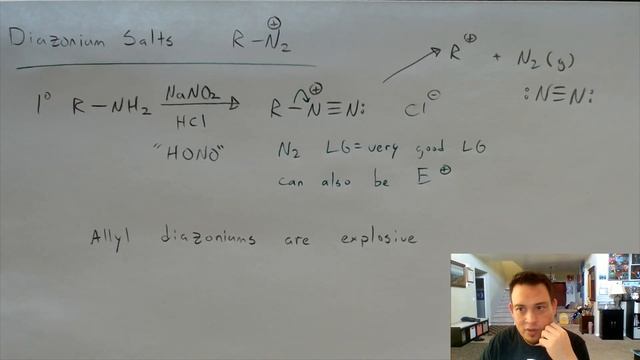 Diazonium Salts R-N₂⊕
1° R-NH₂ NaNO₂ HCl R-N⊕≡N: Cl⊖ R⊕ + N₂(g)
:N≡N:
"HONO" N₂ LG=very good LG
can also be E⊕
Allyl diazoniums are explosive